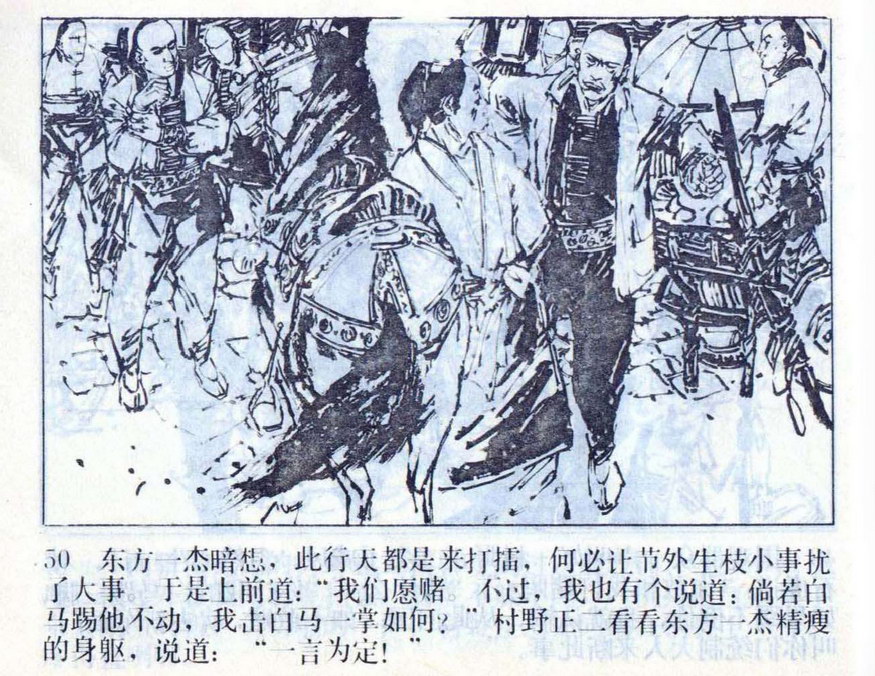 50 东方一杰暗想，此行大都是来打擂，何必让节外生枝小事扰
了大事。于是上前道：“我们愿赌。不过，我也有个说道：倘若白
马踢他不动，我击白马一掌如何？”村野正二看看东方一杰精瘦
的身躯，说道：“一言为定！”